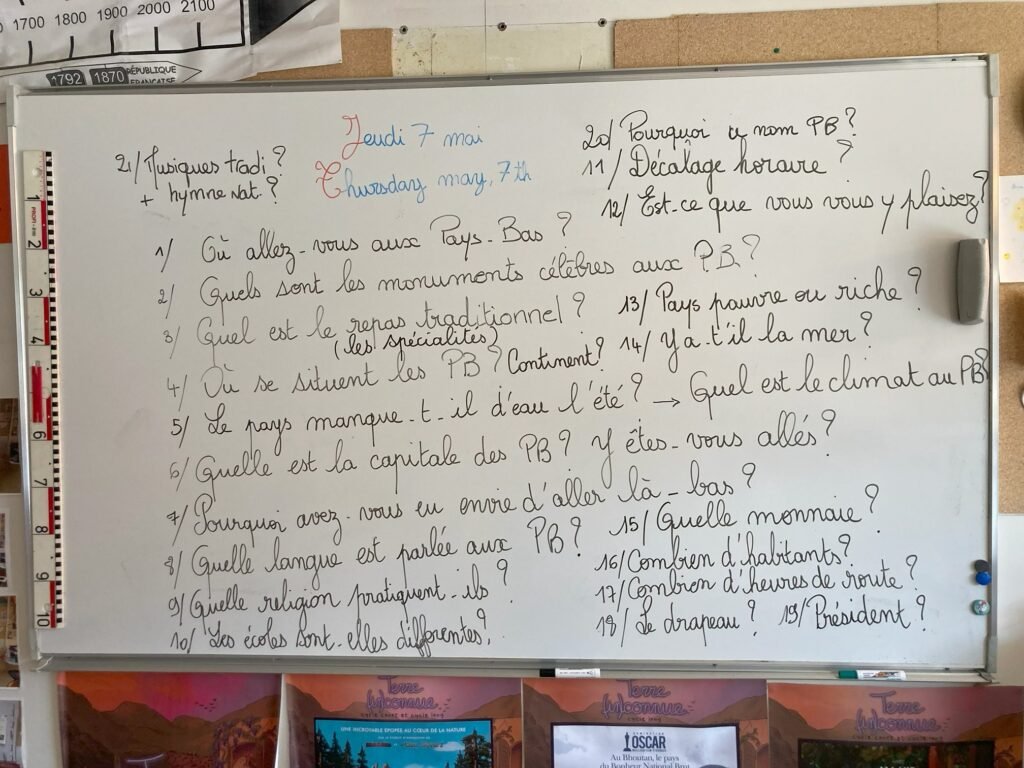 1700 1800 1900 2000 2100
1792 1870 RÉPUBLIQUE
FRANÇAISE
Jeudi 7 mai
Thursday may, 7th
21/ Musiques tradi ?
+ hymne nat. ?
20/ Pourquoi ce nom PB ?
11/ Décalage horaire ?
12/ Est-ce que vous vous y plaisez ?
1/ Où allez-vous aux Pays-Bas ?
2/ Quels sont les monuments célèbres aux PB ?
3/ Quel est le repas traditionnel ?
(les spécialités)
13/ Pays pauvre ou riche ?
4/ Où se situent les PB ? Continent ?
14/ Y a-t'il la mer ?
5/ Le pays manque-t-il d'eau l'été ? → Quel est le climat au PB ?
6/ Quelle est la capitale des PB ? Y êtes-vous allés ?
7/ Pourquoi avez-vous eu envie d'aller là-bas ?
8/ Quelle langue est parlée aux PB ?
15/ Quelle monnaie ?
9/ Quelle religion pratiquent-ils ?
16/ Combien d'habitants ?
17/ Combien d'heures de route ?
10/ Les écoles sont-elles différentes ?
18/ Le drapeau ? 19/ Président ?
1
2
3
4
6
7
8
9
10
Terre
Inconnue
UNE INCROYABLE ÉPOPÉE AU CŒUR DE LA NATURE
Terre
Inconnue
OSCAR
Au Bhoutan, le pays
du Bonheur National Brut
Terre
Inconnue